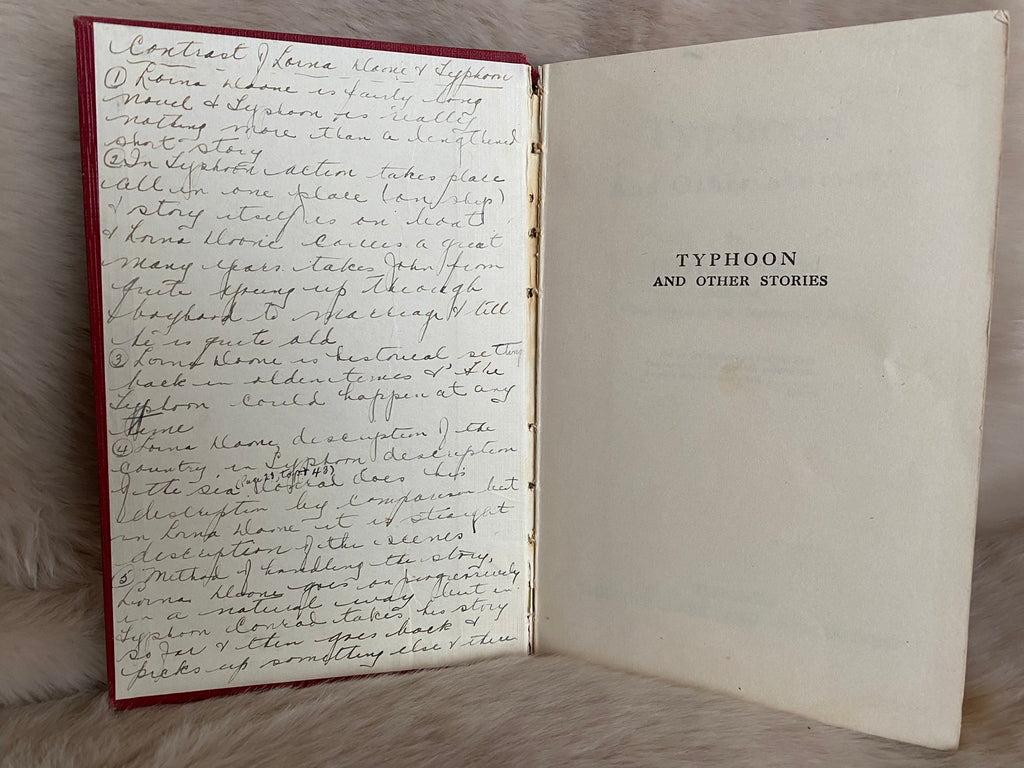 Contrast of Lorna Doone & Typhoon
① Lorna Doone is fairly long
novel & Typhoon is really
nothing more than a lengthened
short story
② In Typhoon action takes place
all in one place (on ship)
& story itself is on boat
& Lorna Doone covers a great
many years takes John from
quite young up through
boyhood to marriage & till
he is quite old
③ Lorna Doone is historical setting
back in olden times & the
Typhoon could happen at any
time
④ Lorna Doone, description of the
country in Typhoon description
of the sea Conrad does his
description by comparison but
in Lorna Doone it is straight
description of the scenes
⑤ Method of handling the story,
Lorna Doone goes on progressively
in a natural way but in
Typhoon Conrad takes his story
so far & then goes back &
picks up something else & then
TYPHOON
AND OTHER STORIES